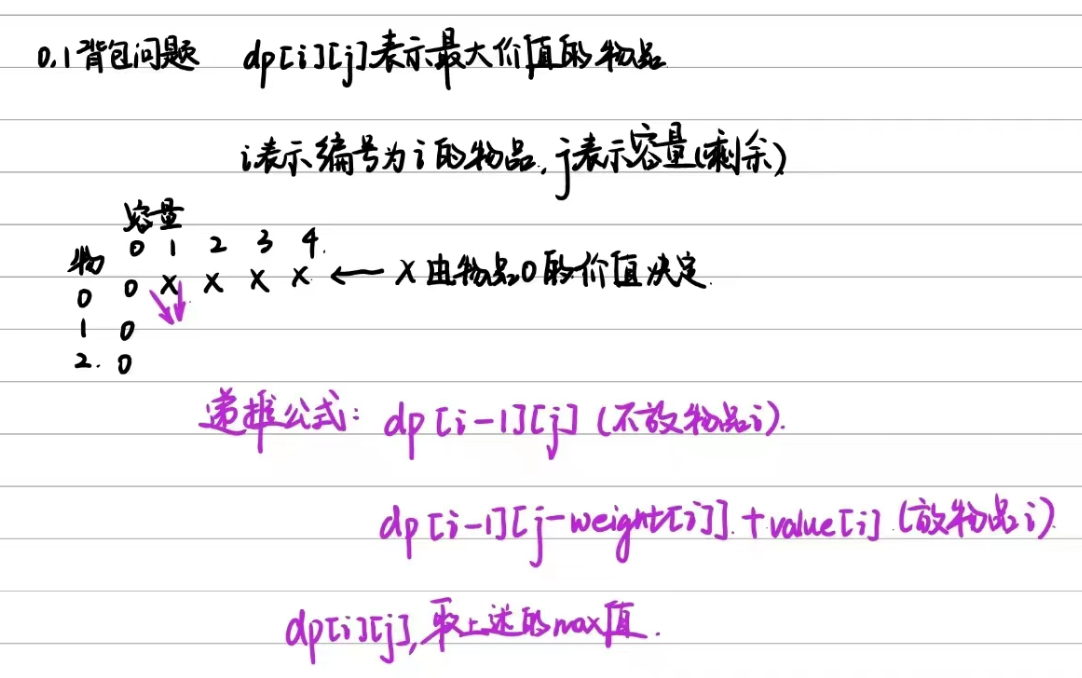 0,1背包问题 dp[i][j]表示最大价值的物品
i表示编号为i的物品,j表示容量(剩余)
容量
物 0 1 2 3 4.
0 0 X X X X ← X由物品0的价值决定.
1 0
2. 0
递推公式: dp[i-1][j] (不放物品i).
dp[i-1][j-weight[i]].+value[i] (放物品i)
dp[i][j],取上述的max值.